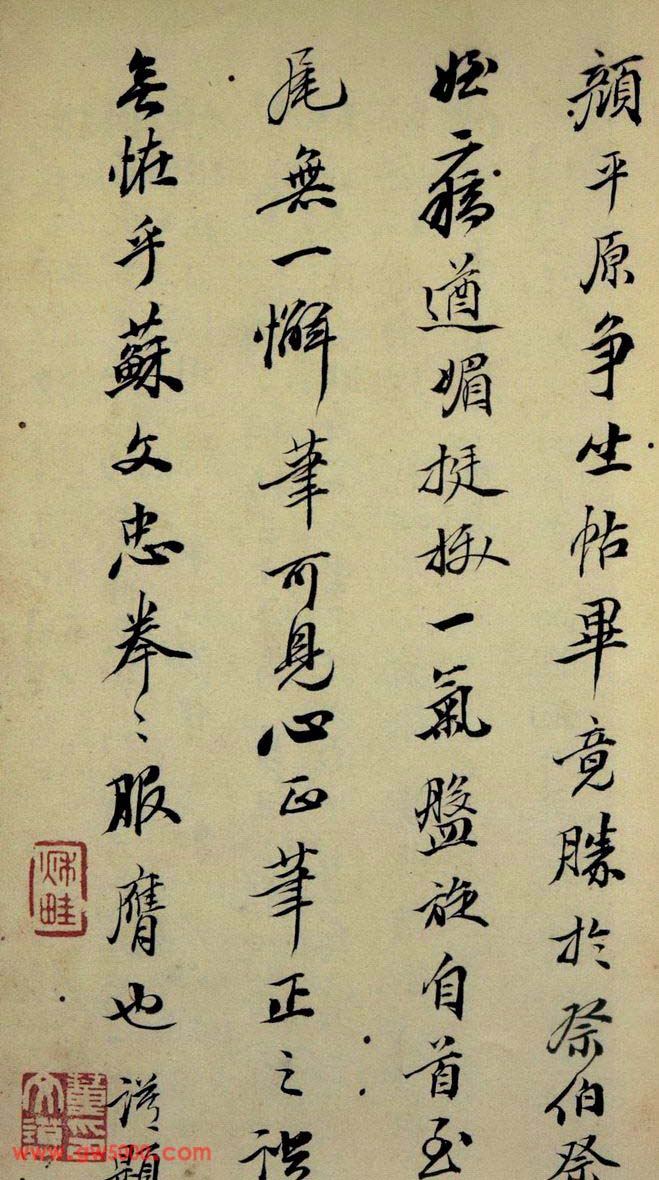 顏平原争坐帖畢竟勝於祭伯祭
姪二稿遒媚挺拔一氣盤旋自首至
尾無一懈筆可見心正筆正之
無怪乎蘇文忠拳〻服膺也謹題
秌畦
董
www.gw5000.com